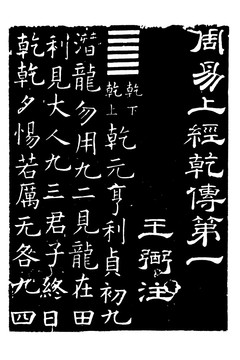 周易上經乾傳第一
王弼注
䷀乾下乾上乾元亨利貞初九
潛龍勿用九二見龍在田
利見大人九三君子終日
乾乾夕惕若厲无咎九四